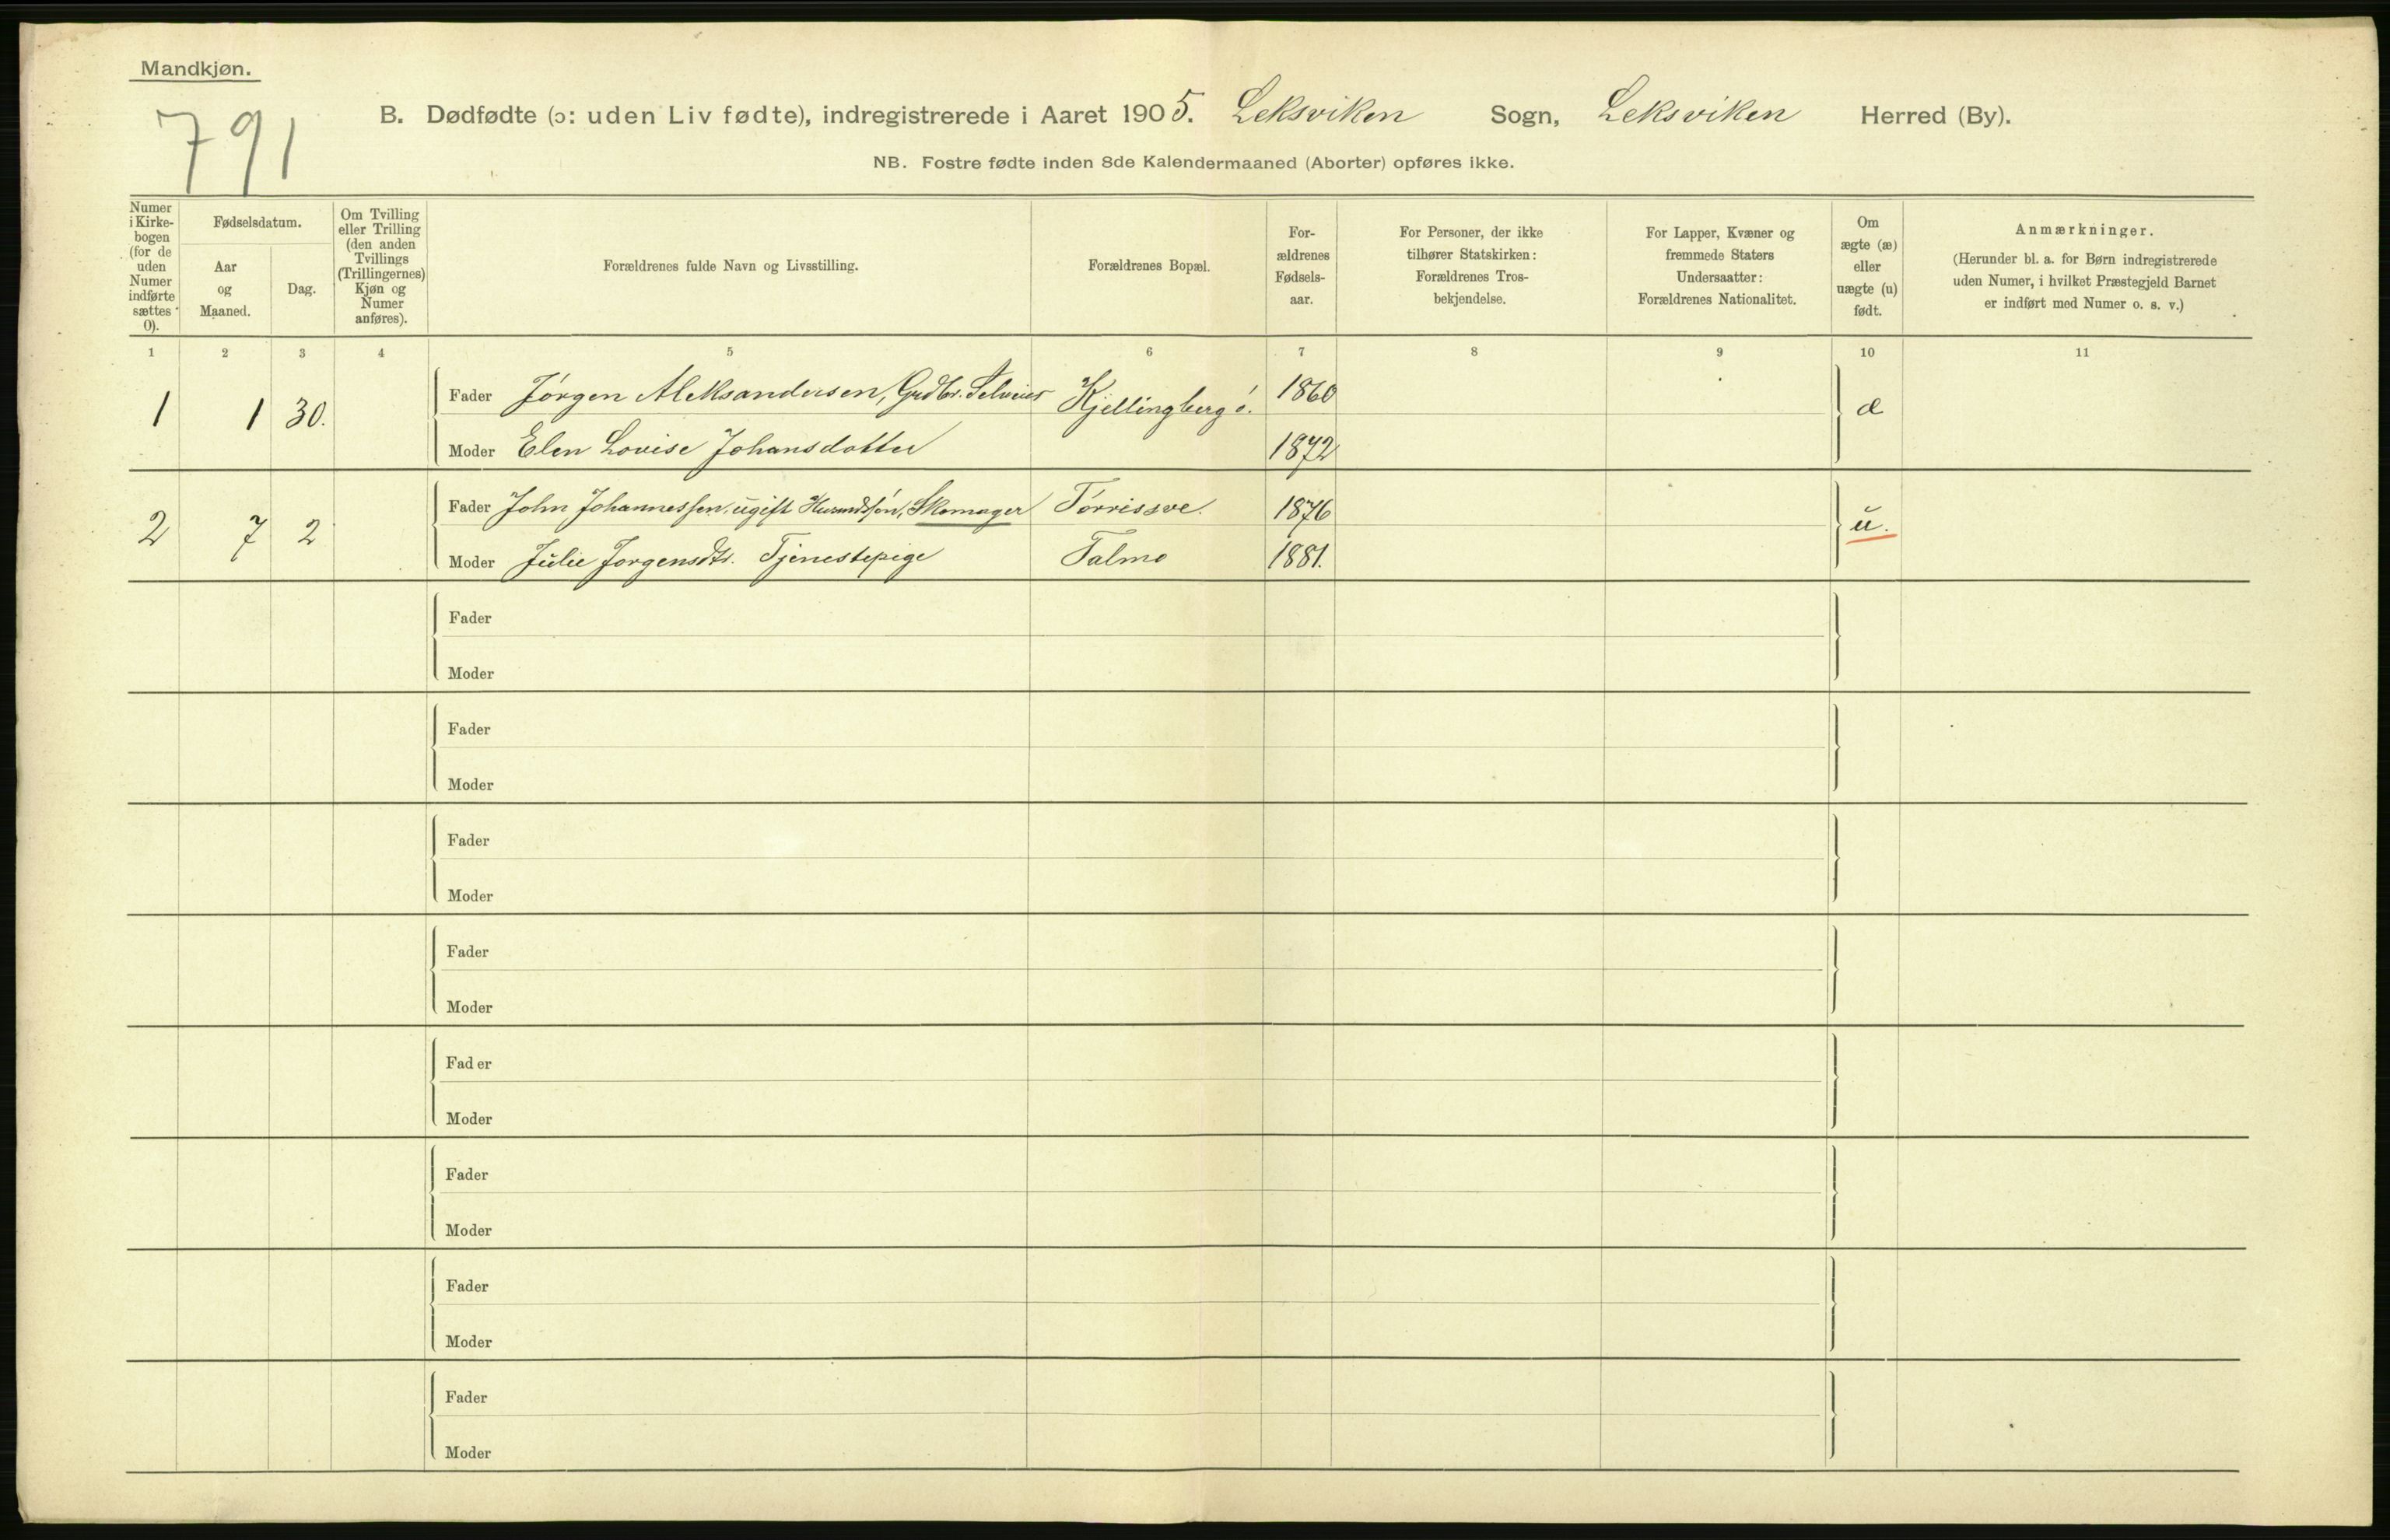 Mandkjøn.
791
B. Dødfødte (ɔ: uden Liv fødte), indregistrerede i Aaret 1905. Leksviken Sogn, Leksviken Herred (By).
NB. Fostre fødte inden 8de Kalendermaaned (Aborter) opføres ikke.
Numer i Kirkebogen (for de uden Numer indførte sættes 0).
Fødselsdatum.
Aar og Maaned.
Dag.
Om Tvilling eller Trilling (den anden Tvillings (Trillingernes) Kjøn og Numer anføres).
Forældrenes fulde Navn og Livsstilling.
Forældrenes Bopæl.
For-
ældrenes
Fødsels-
aar.
For Personer, der ikke
tilhører Statskirken:
Forældrenes Tros-
bekjendelse.
For Lapper, Kvæner og
fremmede Staters
Undersaatter:
Forældrenes Nationalitet.
Om
ægte (æ)
eller
uægte (u)
født.
Anmærkninger.
(Herunder bl. a. for Børn indregistrerede
uden Numer, i hvilket Præstegjeld Barnet
er indført med Numer o. s. v.)
1 2 3 4 5 6 7 8 9 10 11
1 1 30. Fader Jørgen Aleksandersen, Grdbr. Selveier Kjellingberg ø. 1860 æ
Moder Elen Lovise Johansdatter 1872
2 7 2 Fader John Johannessen, ugift Skomager Torrissve. 1876 u.
Moder Julie Jørgensdtr. Tjenestepige Talmo 1881.
Fader
Moder
Fader
Moder
Fader
Moder
Fader
Moder
Fader
Moder
Fader
Moder
Fader
Moder
Fader
Moder